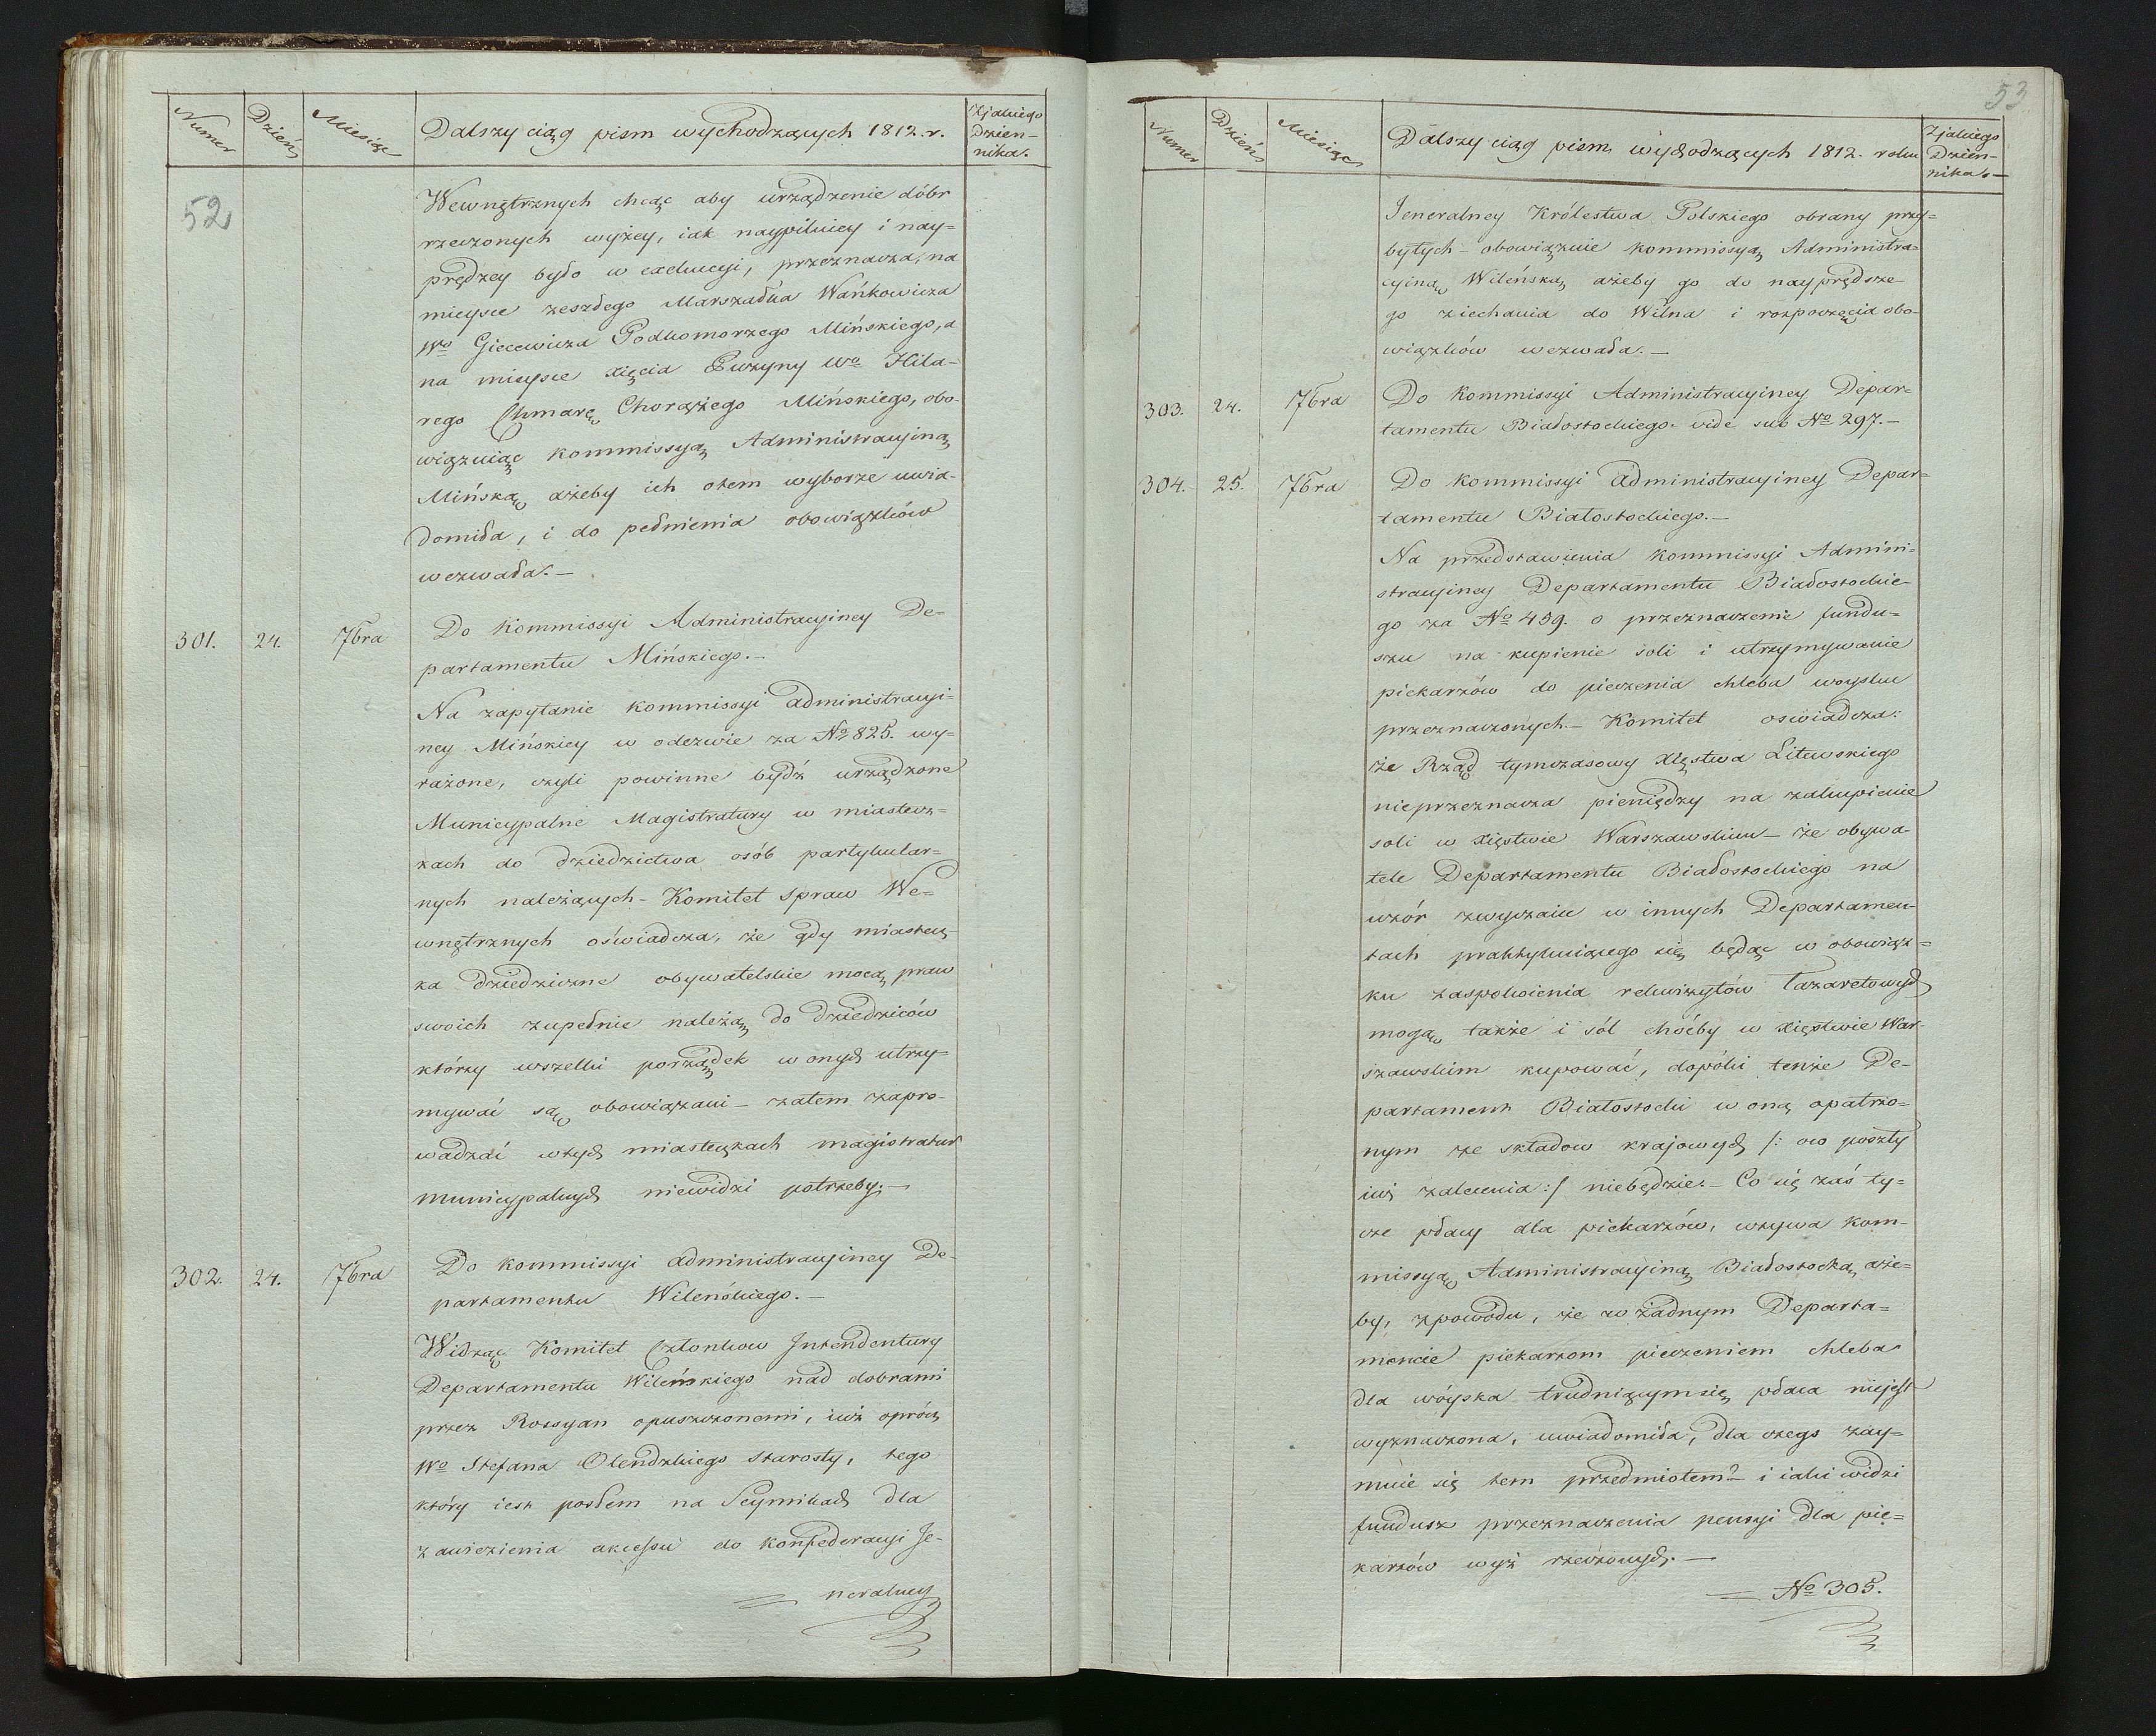 Numer Dzień Miesiąc Dalszy ciąg pism wychodzących 1812. r. Zjakiego
Dzien-
nika.
52
Wewnętrznych chcąc aby urządzenie dóbr
rzeczonych wyżey, iak naypilniey i nay=
prędzey było w exekucyi, przeznacza, na
mieysce zeszłego Marszałka Wańkowicza
Wo Giecewicza Podkomorzego Mińskiego, a
na mieysce xięcia Puzyny Wo Hila-
rego Chmarę Chorążego Mińskiego, obo-
wiązuiąc kommissyą Administracyiną
Mińską ażeby ich otem wyborze uwia-
domiła, i do pełnienia obowiązków
wezwała.—
301. 24. 7bra Do kommissyi Administracyiney De=
partamentu Mińskiego.—
Na zapytanie kommissyi administracyi=
ney Mińskiey w odezwie za No 825. wy-
rażone, czyli powinne bydź urządzone
Municypalne Magistratury w miastecz=
kach do dziedzictwa osób partykular=
nych należących - Komitet Spraw We=
wnętrznych oświadcza, że gdy miastecz-
ka dziedziczne obywatelskie mocą praw
swoich zupełnie należą do dziedziców
którzy wszelki porządek w onych utrzy=
mywać są obowiązani — zatem zapro-
wadzać wtych miasteczkach magistratur
municypalnych niewidzi potrzeby.—
302. 24. 7bra Do kommissyi administracyiney De-
partamentu Wileńskiego.—
Widząc Komitet Członkow Intendentury
Departamentu Wileńskiego nad dobrami
przez Rossyan opuszczonemi, iuż oprócz
Wo Stefana Olendzkiego Starosty, tego
który iest posłem na Seymikach dla
zawiezienia akcessu do konfederacyi Je-
= neralney
53
Numer Dzień Miesiąc Dalszy ciąg pism wychodzących 1812. roku Zjakiego
Dzien-
nika.—
Jeneralney Królestwa Polskiego obrany przy=
byłych — obowiązuie kommissyą Administra=
cyiną Wileńską ażeby go do nayprędsze-
go ziechania do Wilna i rozpoczęcia obo-
wiązków wezwała.—
303. 24. 7bra Do kommissyi Administracyiney Depar=
tamentu Białostockiego. vide sub No 297.—
304. 25. 7bra Do kommissyi administracyiney Depar=
tamentu Białostockiego.—
Na przedstawienia kommissyi Admini=
stracyiney Departamentu Białostockie-
go za No 459. o przeznaczenie fundu=
szu na kupienie soli i utrzymywanie
piekarzów do pieczenia chleba woysku
przeznaczonych.— Komitet oswiadcza:
że Rząd tymczasowy Xięstwa Litewskiego
nieprzeznacza pieniędzy na zakupienie
soli w xięstwie Warszawskim — że obywa-
tele Departamentu Białostockiego na
wzór zwyczaiu w innych Departamen-
tach praktykuiącego się będąc w obowiąz=
ku zaspokoienia rekwizytów Lazaretowych
mogą także i sól choćby w xięstwie War-
szawskim kupować, dopóki tenże De-
partament Białostocki w oną opatrzo=
nym ze składow krajowych /: oco poszły
iuż zalecenia :/ niebędzie.— Co się zaś ty=
cze płacy dla piekarzów, wzywa Kom-
missyą Administracyiną Białostocką, aże=
by, zpowodu, że w żadnym Departa=
mencie piekarzom pieczeniem chleba
dla wóyska trudniącym się płaca niejest
wyznaczona, uwiadomiła, dla czego zay=
muie się tem przedmiotem? i iaki widzi
fundusz przeznaczenia pensyi dla pie=
karzów wyż rzeczonych.—
= No 305.